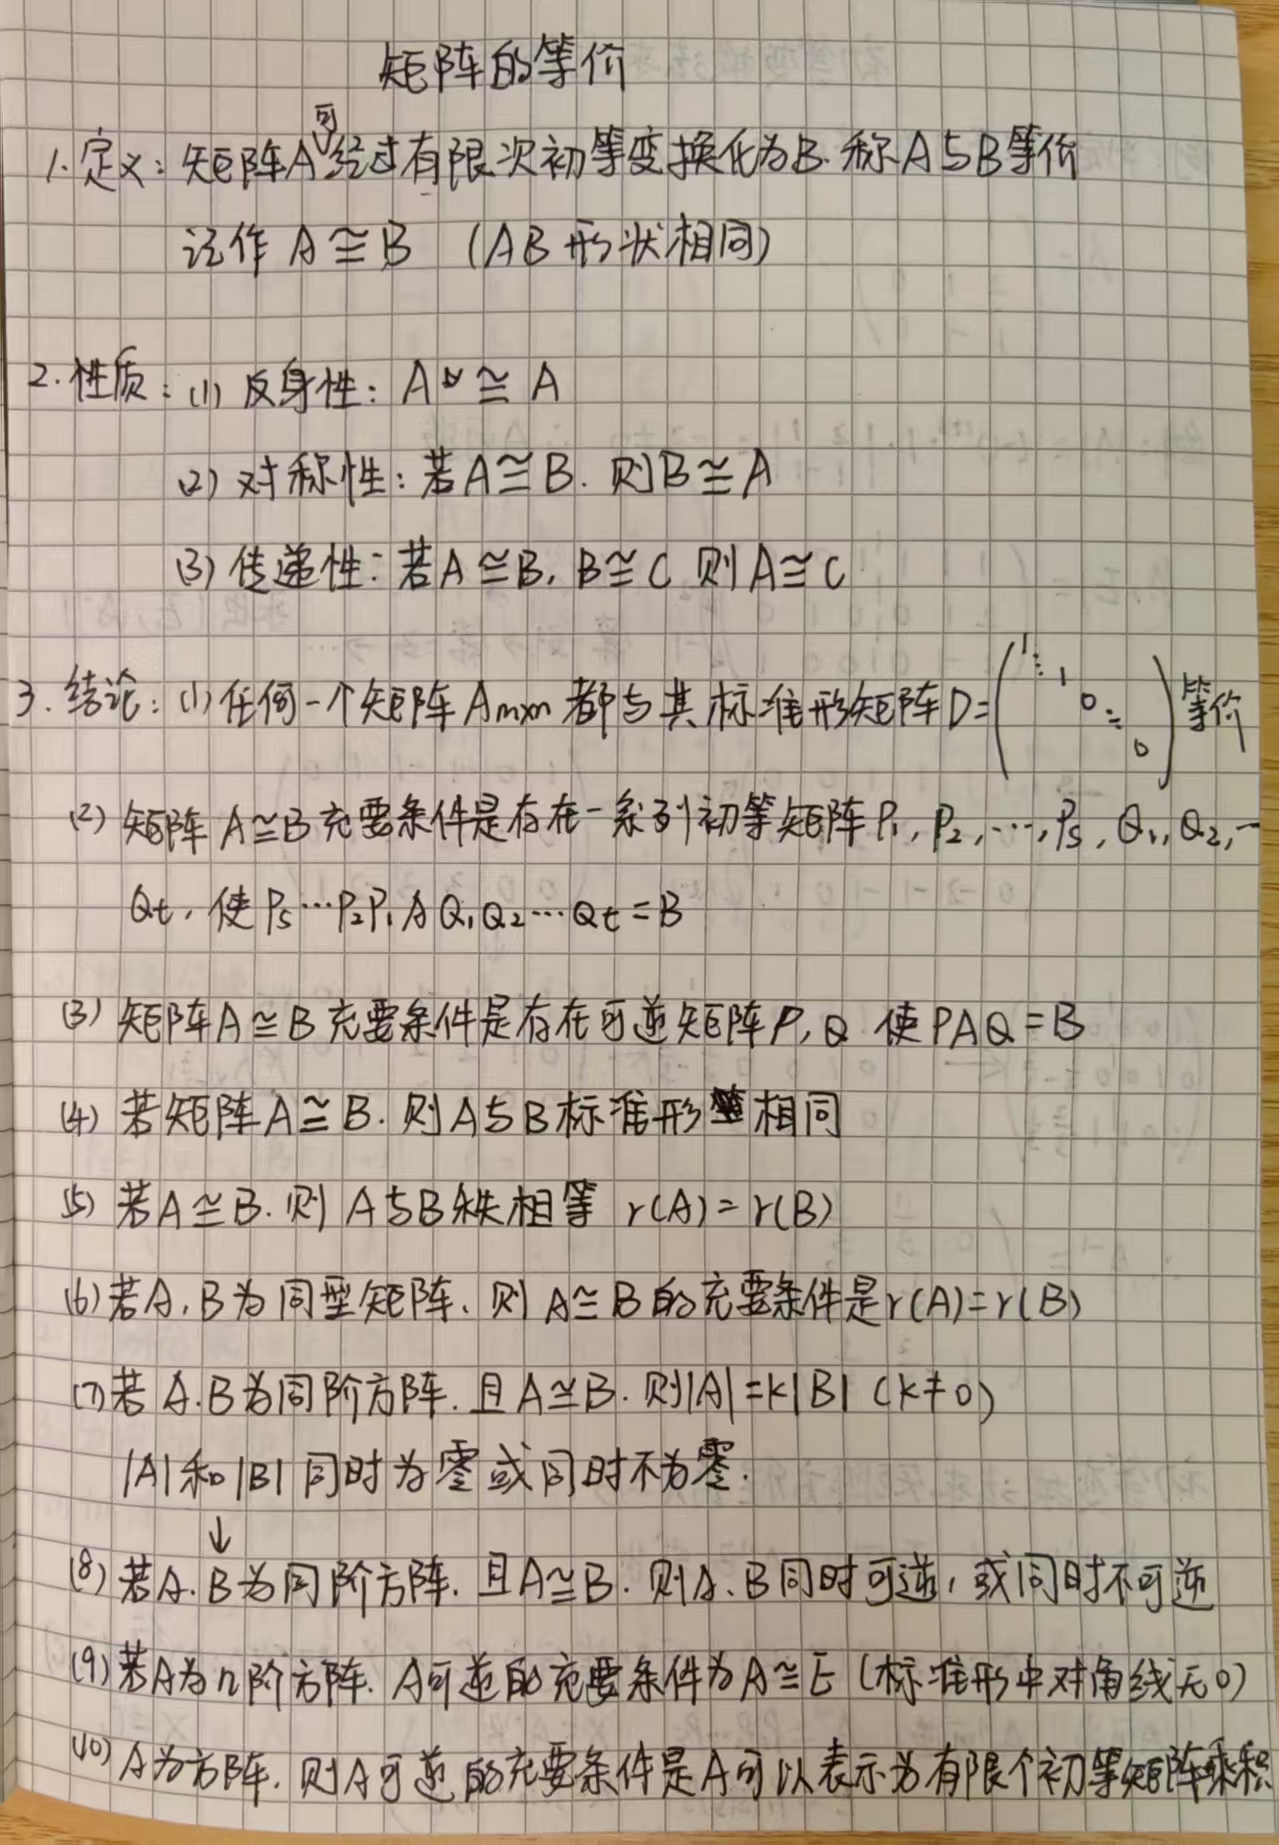 矩阵的等价
1. 定义：矩阵A可经过有限次初等变换化为B. 称A与B等价
记作 A≅B （AB形状相同）
2. 性质：(1) 反身性：A≅A
(2) 对称性：若A≅B. 则B≅A
(3) 传递性：若A≅B, B≅C 则A≅C
3. 结论：(1) 任何一个矩阵Am×n 都与其标准形矩阵D=(1 ⋱ 1 0 ⋱ 0)等价
(2) 矩阵A≅B充要条件是存在一系列初等矩阵P1, P2, …, Ps, Q1, Q2, …
Qt, 使Ps…P2P1AQ1Q2…Qt=B
(3) 矩阵A≅B充要条件是存在可逆矩阵P, Q 使PAQ=B
(4) 若矩阵A≅B. 则A与B标准形相同
(5) 若A≅B. 则A与B秩相等 r(A)=r(B)
(6) 若A, B为同型矩阵, 则A≅B的充要条件是r(A)=r(B)
(7) 若A.B为同阶方阵. 且A≅B. 则|A|=k|B| (k≠0)
|A|和|B|同时为零或同时不为零.
↓
(8) 若A.B为同阶方阵. 且A≅B. 则A、B同时可逆, 或同时不可逆
(9) 若A为n阶方阵. A可逆的充要条件为A≅E (标准形中对角线无0)
(10) A为方阵. 则A可逆的充要条件是A可以表示为有限个初等矩阵乘积